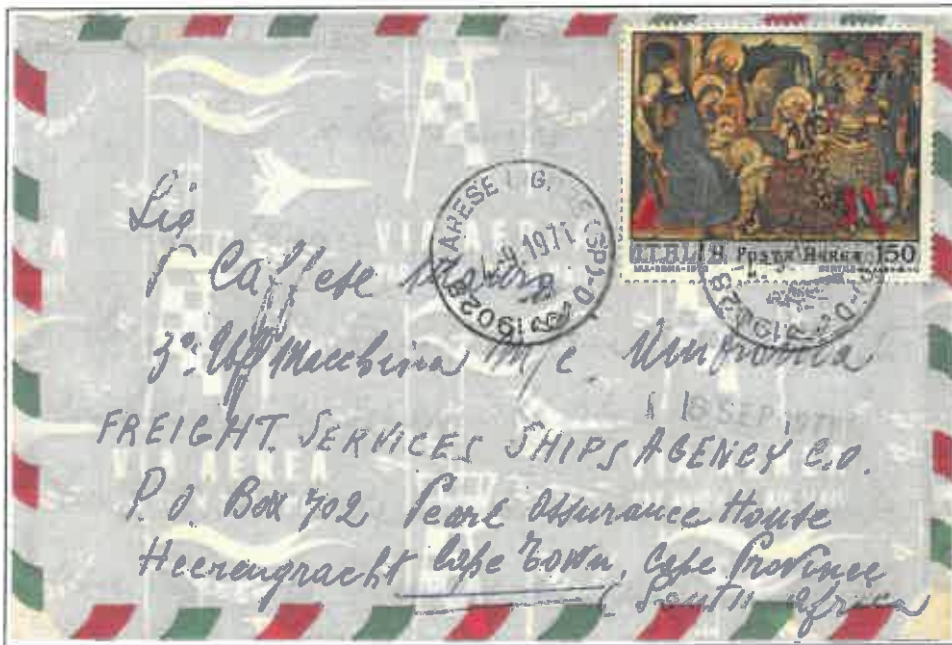 ITALIA Posta Aerea 150
VARESE LIG. (SP)
1971
19028
VIA AEREA
Sig
Caffese
3° Uff Macchina M/c
6 SEP 1971
FREIGHT. SERVICES SHIPS AGENCY C.O.
P.O. Box 702 Pearl Assurance House
Heerengracht Cape Town, Cape Province
South Africa
VIA AEREA